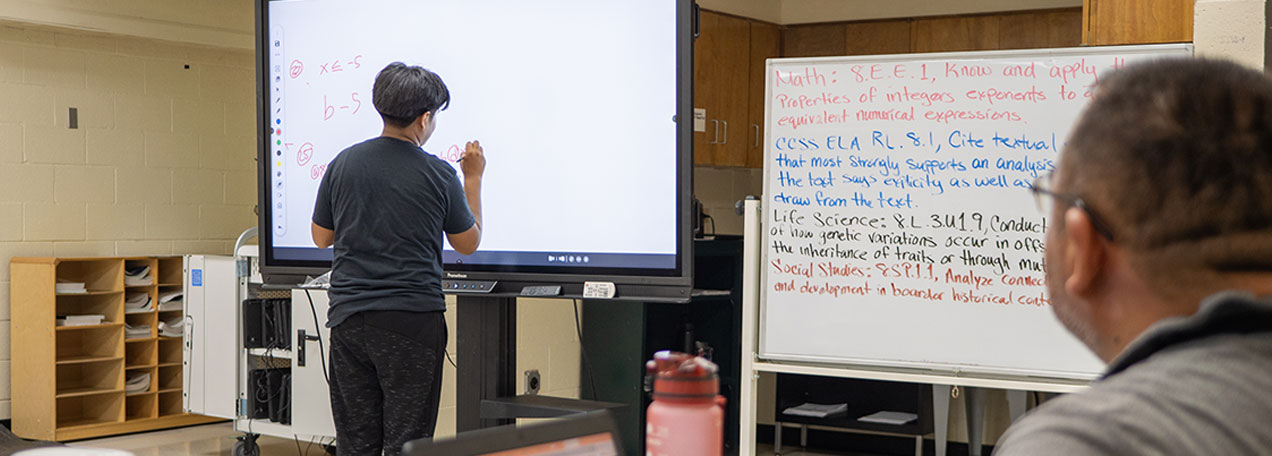 ② x ≤ -5
b - 5
⑮
Promethean
Math: 8.E.E.1, Know and apply
Properties of integers exponents to
equivalent numerical expressions.
CCSS ELA RL. 8.1, Cite textual
that most strongly supports an analysis
the text says exilicity as well as
draw from the text.
Life Science: 8.L.3.U1.9, Conduct
of how genetic variations occur in offs
the inheritance of traits or through mut
Social Studies: 8.SP.1.1, Analyze connec
and development in boarder historical cont